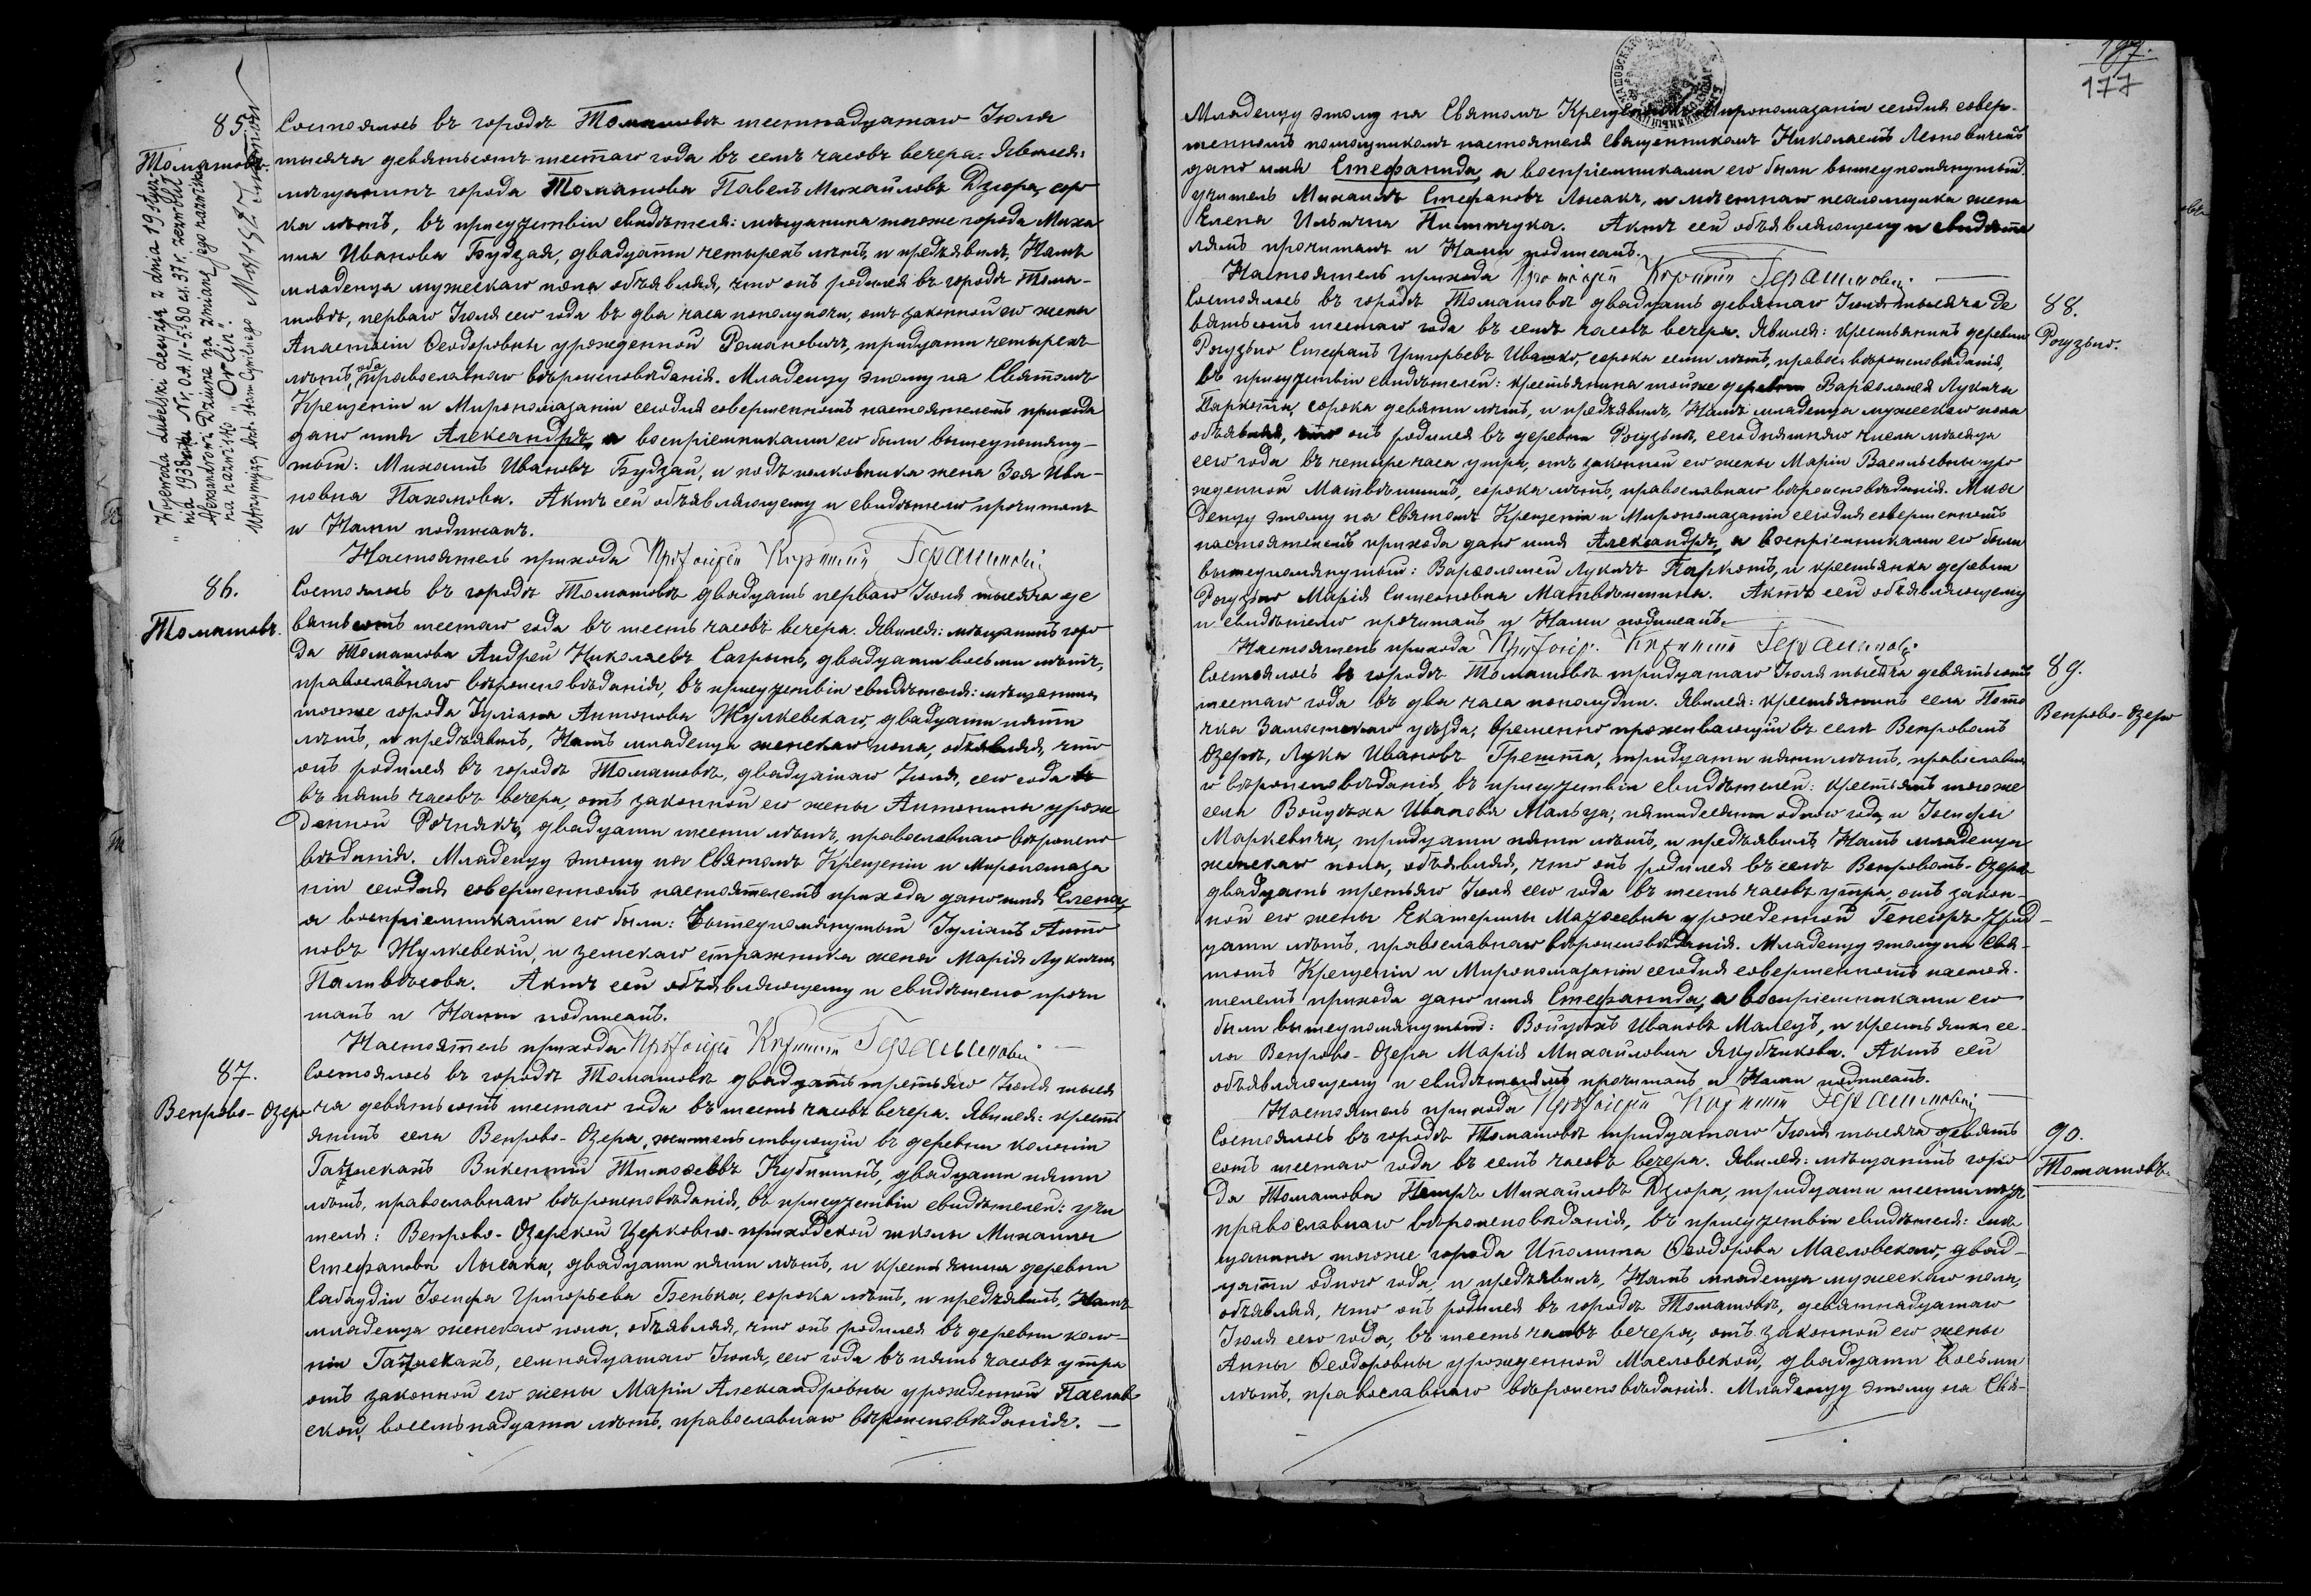 85.
Томашовъ.
"Wojewoda Lubelski decyzją z dnia 19 stycz-
nia 1938 roku Nr. O.A. 11-5-30 ex. 37 r. zezwolił
Aleksandrowi Dziurze na zmianę jego nazwiska
na nazwisko "Orlin".
Utrzymujący Akta Stanu Cywilnego
Состоялось въ городѣ Томашовѣ шестнадцатаго Іюля
тысяча девятьсотъ шестаго года въ семь часовъ вечера. Явился:
мѣщанинъ города Томашова Павелъ Михайловъ Дзюра, соро
ка лѣтъ, въ присутствіи свидѣтеля: мѣщанина тогоже города Миха
ила Иванова Будзая, двадцати четырехъ лѣтъ, и предъявилъ Намъ
младенца мужескаго пола объявляя, что онъ родился въ городѣ Тома-
шовѣ, перваго Іюля сего года въ два часа пополуночи, отъ законной его жены
Анастасіи Ѳеодоровны урожденной Романовичъ, тридцати четырехъ
лѣтъ, православнаго вѣроисповѣданія. Младенцу этому на Святомъ
Крещеніи и Миропомазаніи сегодня совершенномъ настоятелемъ прихода
дано имя Александръ, а воспріемниками его были вышеупомяну-
тый: Михаилъ Ивановъ Будзай, и подполковника жена Зоя Ива-
новна Пахомова. Актъ сей объявляющему и свидѣтелю прочитанъ
и Нами подписанъ.
Настоятель прихода Протоіерей Корнилій Герашиновичъ
86.
Томашовъ.
Состоялось въ городѣ Томашовѣ двадцать перваго Іюля тысяча де
вятьсотъ шестаго года въ шесть часовъ вечера. Явился: мѣщанинъ горо
да Томашова Андрей Николаевъ Сагрынь, двадцати восьми лѣтъ,
православнаго вѣроисповѣданія, въ присутствіи свидѣтеля: мѣщанина
тогоже города Іуліана Антонова Жулкевскаго, двадцати пяти
лѣтъ, и предъявилъ Намъ младенца женскаго пола, объявляя, что
онъ родился въ городѣ Томашовѣ, двадцатаго Іюля, сего года
въ пять часовъ вечера, отъ законной его жены Антонины урож
денной Рочнякъ, двадцати шести лѣтъ, православнаго вѣроиспо
вѣданія. Младенцу этому на Святомъ Крещеніи и Миропомаза
ніи сегодня совершенномъ настоятелемъ прихода дано имя Елена,
а воспріемниками его были: вышеупомянутый Іуліанъ Анто
новъ Жулкевскій, и земскаго стражника жена Марія Лукична
Паливѣсова. Актъ сей объявляющему и свидѣтелю прочи
танъ и Нами подписанъ.
Настоятель прихода Протоіерей Корнилій Герашиновичъ
87.
Вепрово-Озеро
Состоялось въ городѣ Томашовѣ двадцать третьяго Іюля тыся
ча девятьсотъ шестаго года въ шесть часовъ вечера. Явился: крест
янинъ села Вепрово-Озера, жительствующій въ деревни колоніи
Викентій Тимоѳеевъ Кубишинъ, двадцати пяти
лѣтъ, православнаго вѣроисповѣданія, въ присутствіи свидѣтелей: учи
теля: Вепрово-Озерской Церковно-приходской школы Михаила
Стефанова Лысака, двадцати пяти лѣтъ, и крестьянина деревни
Сабаудіи Іосифа Григорьева Бенька, сорока лѣтъ, и предъявилъ Намъ
младенца женскаго пола, объявляя, что онъ родился въ деревни коло-
ніи семнадцатаго Іюля, сего года въ пять часовъ утра
отъ законной его жены Маріи Александровны урожденной Паслав
ской, восемнадцати лѣтъ, православнаго вѣроисповѣданія. —
177
Младенцу этому на Святомъ Крещеніи и Миропомазаніи сегодня совер-
шенномъ помощникомъ настоятеля священникомъ Николаемъ Леоновичемъ
дано имя Стефанида, а воспріемниками его были вышеупомянутый
учитель Михаилъ Стефановъ Лысакъ, и мѣстнаго псаломщика жена
Елена Ильична Пилипчука. Актъ сей объявляющему и свидѣте
лямъ прочитанъ и Нами подписанъ.
Настоятель прихода Протоіерей Корнилій Герашиновичъ
88.
Рогузьно.
Состоялось въ городѣ Томашовѣ двадцать девятаго Іюля тысяча де
вятьсотъ шестаго года въ семь часовъ вечера. Явился: крестьянинъ деревни
Рогузьно Стефанъ Григорьевъ Ивашко, сорока семи лѣтъ, правос. вѣроисповѣданія,
въ присутствіи свидѣтелей: крестьянина тойже деревни Варѳоломея Лукича
Паркота, сорока девяти лѣтъ, и предъявилъ Намъ младенца мужескаго пола
объявляя, что онъ родился въ деревни Рогузьнѣ, сегодняшняго числа мѣсяца
сего года въ четыре часа утра, отъ законной его жены Маріи Васильевны уро
жденной Матвѣишинъ, сорока лѣтъ, православнаго вѣроисповѣданія. Мла
денцу этому на Святомъ Крещеніи и Миропомазаніи сегодня совершенномъ
настоятелемъ прихода дано имя Александръ, а воспріемниками его были
вышеупомянутый: Варѳоломей Лукичъ Паркотъ, и крестьянка деревни
Рогузьно Марія Симеоновна Матвѣишина. Актъ сей объявляющему
и свидѣтелю прочитанъ и Нами подписанъ.
Настоятель прихода Протоіер. Корнилій Герашиновичъ
89.
Вепрово-Озеро
Состоялось въ городѣ Томашовѣ тридцатаго Іюля тысяча девятьсотъ
шестаго года въ два часа пополудни. Явился: крестьянинъ села Пото
чка Замостскаго уѣзда, временно проживающій въ селѣ Вепровомъ
Озерѣ, Лука Ивановъ Грешта, тридцати пяти лѣтъ, православна
го вѣроисповѣданія, въ присутствіи свидѣтелей: крестьянъ тогоже
села Войцѣха Иванова Мальца, пятидесяти одного года, и Іосифа
Маркевича, тридцати пяти лѣтъ, и предъявилъ Намъ младенца
женскаго пола, объявляя, что онъ родился въ селѣ Вепровомъ-Озерѣ
двадцать третьяго Іюля сего года въ шесть часовъ утра, отъ закон-
ной его жены Екатерины Матѳеевны урожденной Генсіоръ трид-
цати лѣтъ, православнаго вѣроисповѣданія. Младенцу этому на Свя-
томъ Крещеніи и Миропомазаніи сегодня совершенномъ настоя-
телемъ прихода дано имя Стефанида, а воспріемниками его
были вышеупомянутый: Войцѣхъ Ивановъ Малецъ, и крестьянка се-
ла Вепрово-Озера Марія Михайловна Якубчикова. Актъ сей
объявляющему и свидѣтелямъ прочитанъ и Нами подписанъ.
Настоятель прихода Протоіерей Корнилій Герашиновичъ
90.
Томашовъ.
Состоялось въ городѣ Томашовѣ тридцатаго Іюля тысяча девять
сотъ шестаго года въ семь часовъ вечера. Явился: мѣщанинъ горо
да Томашова Петръ Михайловъ Дзюра, тридцати шести лѣтъ
православнаго вѣроисповѣданія, въ присутствіи свидѣтеля: мѣ
щанина тогоже города Иполита Ѳеодорова Масловскаго, двад-
цати одного года, и предъявилъ Намъ младенца мужескаго пола,
объявляя, что онъ родился въ городѣ Томашовѣ, девятнадцатаго
Іюля сего года, въ шесть часовъ вечера, отъ законной его жены
Анны Ѳеодоровны урожденной Масловской, двадцати восьми
лѣтъ, православнаго вѣроисповѣданія. Младенцу этому на Свя-